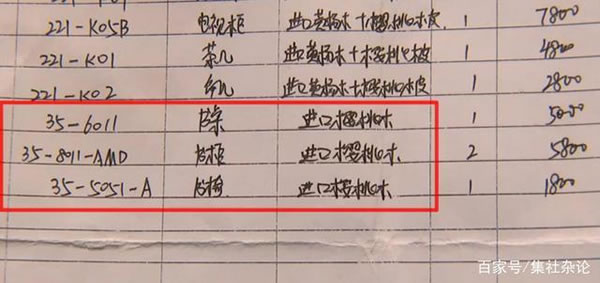 221-K05B 电视柜 进口黄杨木+樱桃木皮 1 7800
221-K01 茶几 进口黄杨木+樱桃木皮 1 4800
221-K02 角几 进口黄杨木+樱桃木皮 1 2800
35-6011 进口樱桃木 1 5000
35-8011-AMD 进口樱桃木 2 5800
35-5051-A 进口樱桃木 1 1800
百家号/集社杂论